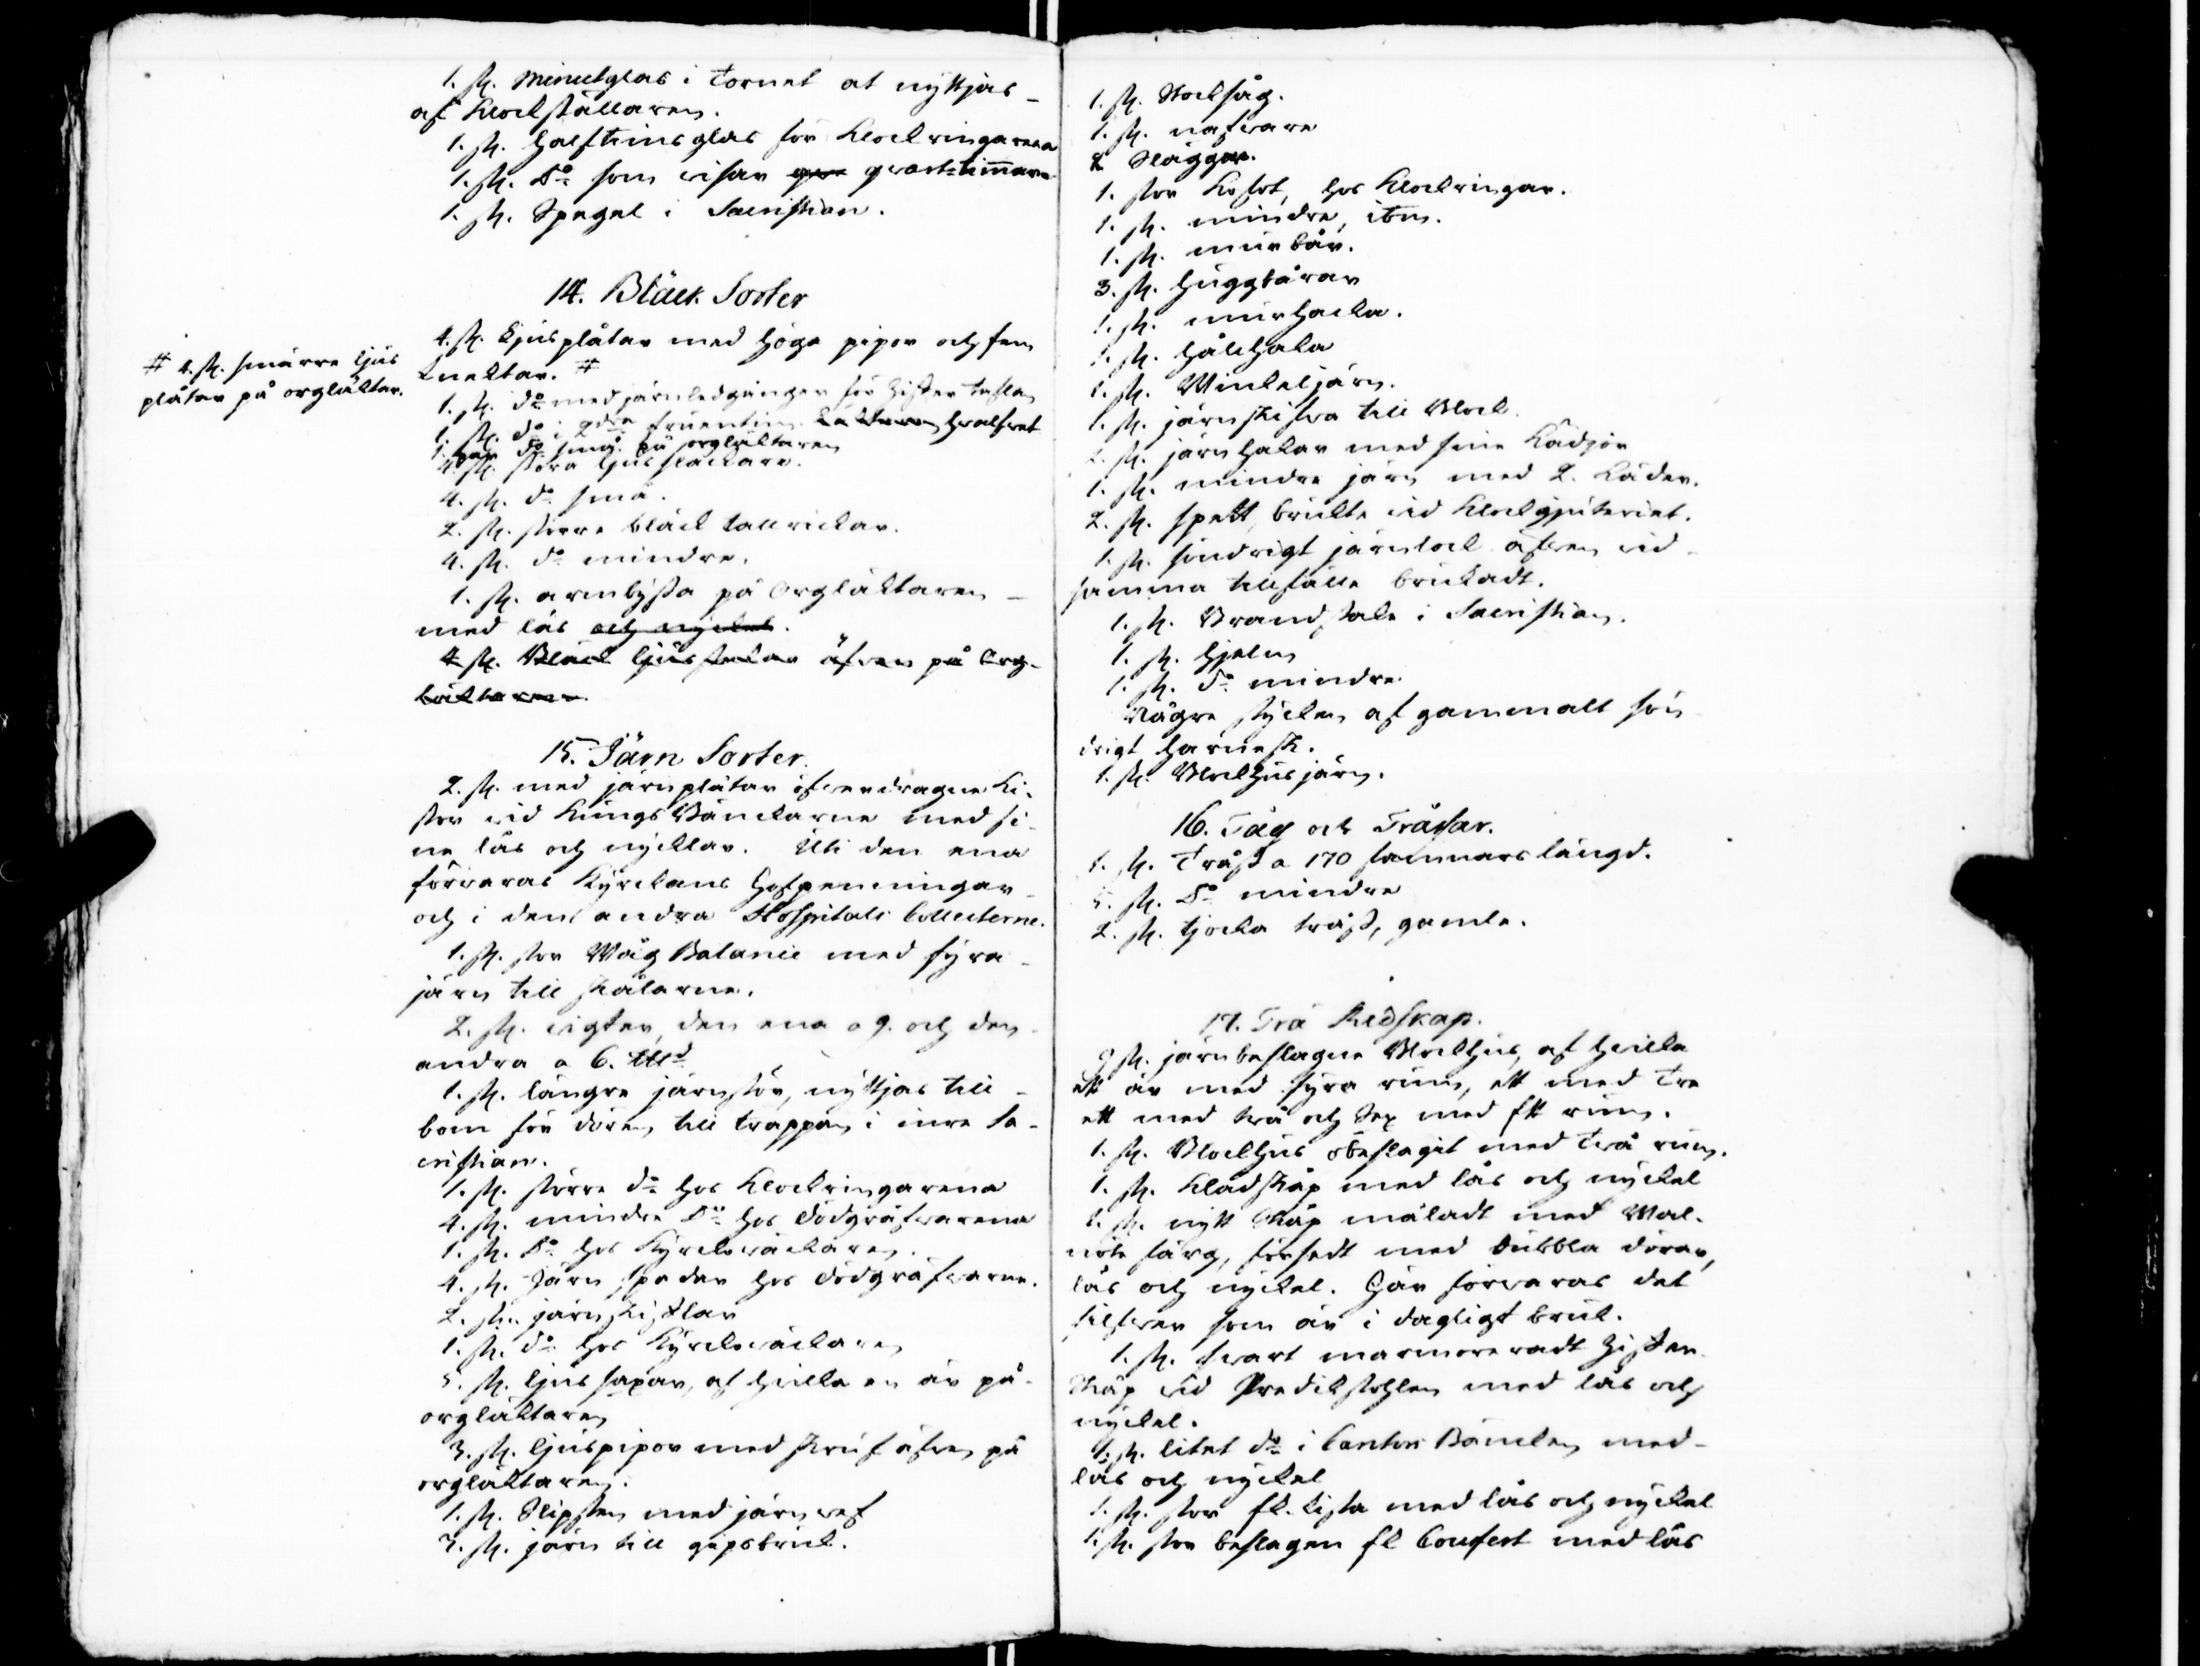 1. st. Minutglas i Tornet at nyttjas
af Klockställaren.
1. st. halftimsglas för Klockringarena
1. st. do som visar qwartstimmarne
1. st. Spegel i Sacristian.
14. Bläck Sorter
4. st. Ljusplåtar med höga pipor och fem
knektar. #
# 4. st. smärre ljus
plåtar på orgläktar.
1. st. do med järnledgångar för Ziffertaflan
1. st. do i qdra fruentim. Läktaren hwalfvet
1. par do små på orgläktaren
4. st. stora ljussläckare.
4. st. do små.
2. st. större bläck tallrickar.
4. st. do mindre.
1. st. armbyssa på Orgläktaren
med lås och nyckel.
4 st. Bläck ljusstakar äfven på Org-
läktaren.
15. Järn Sorter.
2. st. med järnplåtar öfverdragne Ki-
stor vid Kungs Bänckarne med si-
ne lås och nycklar. Uti den ena
förvaras Kyrckans Hofpenningar
och i den andra Hospitals Collecterne.
1. st. stor Wåg Balance med fyra
järn till skålarne.
2. st. vigter, den ena a 9. och den
andra a 6. lld
1. st. längre järnstör, nyttjas till
bom för dören till trappan i inre Sa-
cristian.
1. st. större do hos Klockringarena
4. st. mindre do hos dödgräfvarena
1. st. do hos Kyrckväckaren.
4. st. Järn spadar hos dödgräfvarne.
2. st. järnskiftlar
1. st. do hos Kyrckväckaren
5. st. ljus saxar, af hvilka en är på
orgläktaren
3. st. ljuspipor med skruf äfven på
orgläktaren.
1. st. Slipsten med järnvef
7. st. järn till gipsbruk.
1. st. Stocksåg.
1. st. nafvare
2 Släggor.
1. stor Kofot, hos Klockringar.
1. st. mindre, ibm.
1. st. murbår.
3. st. huggbårar
1. st. murhacka.
1. st. hålhaka
1. st. Winkeljärn.
1. st. järnskifva till Block
2. st. järnhakar med sine Kädjor
1. st. mindre järn med 2. Läder.
2. st. spett, brukte vid Klockgjuteriet.
1. st. söndrigt järnlock äfven vid
samma tillfälle brukadt.
1. st. Brandstake i Sacristian.
1. st. hjelm
1. st. do mindre
Någre stycken af gammalt sön
drigt harnesk.
1. st. Blockhusjärn.
16. Tåg och Tråssar.
1. st. Tråss a 170 famnars längd.
5. st. do mindre
2. st. tjocka tråss, gamle.
17. Trä Redskap.
9 st. järnbeslagne Blockhus, af hvilka
ett är med fyra rum, ett med Tre
ett med två och Sex med ett rum.
1. st. Blockhus obeslagit med Två rum.
1. st. Klädskåp med lås och nyckel
1. st. nytt skåp måladt med Wal-
nöte färg, försedt med dubbla dörar,
lås och nyckel. Här förvaras det
silfver som är i dagligt bruk.
1. st. svart marmoreradt Ziffer
skåp vid Predikstohlen med lås och
nyckel.
1. st. litet do i Cantors Bäncken med
lås och nyckel
1. st. stor ek. kista med lås och nyckel
1. st. stor beslagen ek Couffert med lås